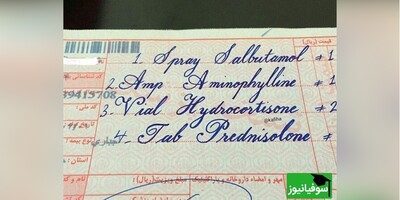 قیمت (ریال)
1. Spray Salbutamol # 1
2. Amp Aminophylline # 1
39415708
3. Vial Hydrocortisone # 2
4- Tab Prednisolone #
مهر و امضاء داروخانه و پاراکلینیک
مبلغ ویزیت (ریال)
سوفیانیوز